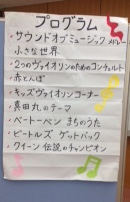 プログラム
・サウンドオブミュージック メドレー
・小さな世界
・2つのヴァイオリンのためのコンチェルト
・赤とんぼ
・キッズヴァイオリンコーナー
・真田丸のテーマ
・ベートーベン まちのうた
・ビートルズ ゲットバック
・クイーン 伝説のチャンピオン